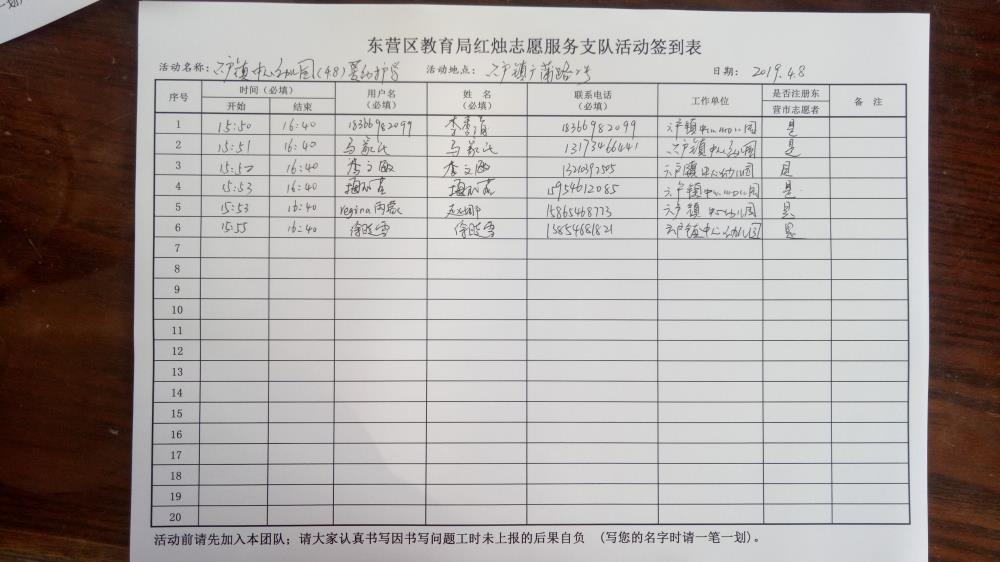 东营区教育局红烛志愿服务支队活动签到表
活动名称：六户镇中心幼儿园(4.8)爱心护学 活动地点：六户镇广蒲路 号 日期：2019.4.8
序号 时间（必填） 用户名（必填） 姓 名（必填） 联系电话（必填） 工作单位 是否注册东营市志愿者 备 注
开始 结束
1 15:50 16:40 18366982099 李 18366982099 六户镇中心幼儿园 是
2 15:51 16:40 马 马 13173466441 六户镇中心幼儿园 是
3 15:52 16:40 李文 李文 六户镇中心幼儿园 是
4 15:53 16:40 15954612085 六户镇中心幼儿园 是
5 15:53 16:40 regina 赵娜 15865468773 六户镇中心幼儿园 是
6 15:55 16:40 徐晓雪 徐晓雪 15854681821 六户镇中心幼儿园 是
7
8
9
10
11
12
13
14
15
16
17
18
19
20
活动前请先加入本团队；请大家认真书写因书写问题工时未上报的后果自负 （写您的名字时请一笔一划）。